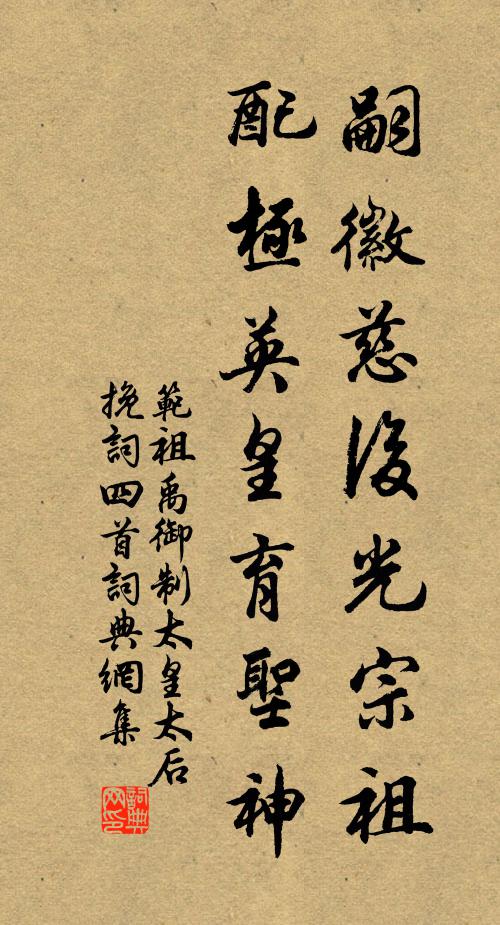 嗣徽慈後光宗祖
配極英皇育聖神
範祖禹御制太皇太后
挽詞四首詞典網集
詞典
网印